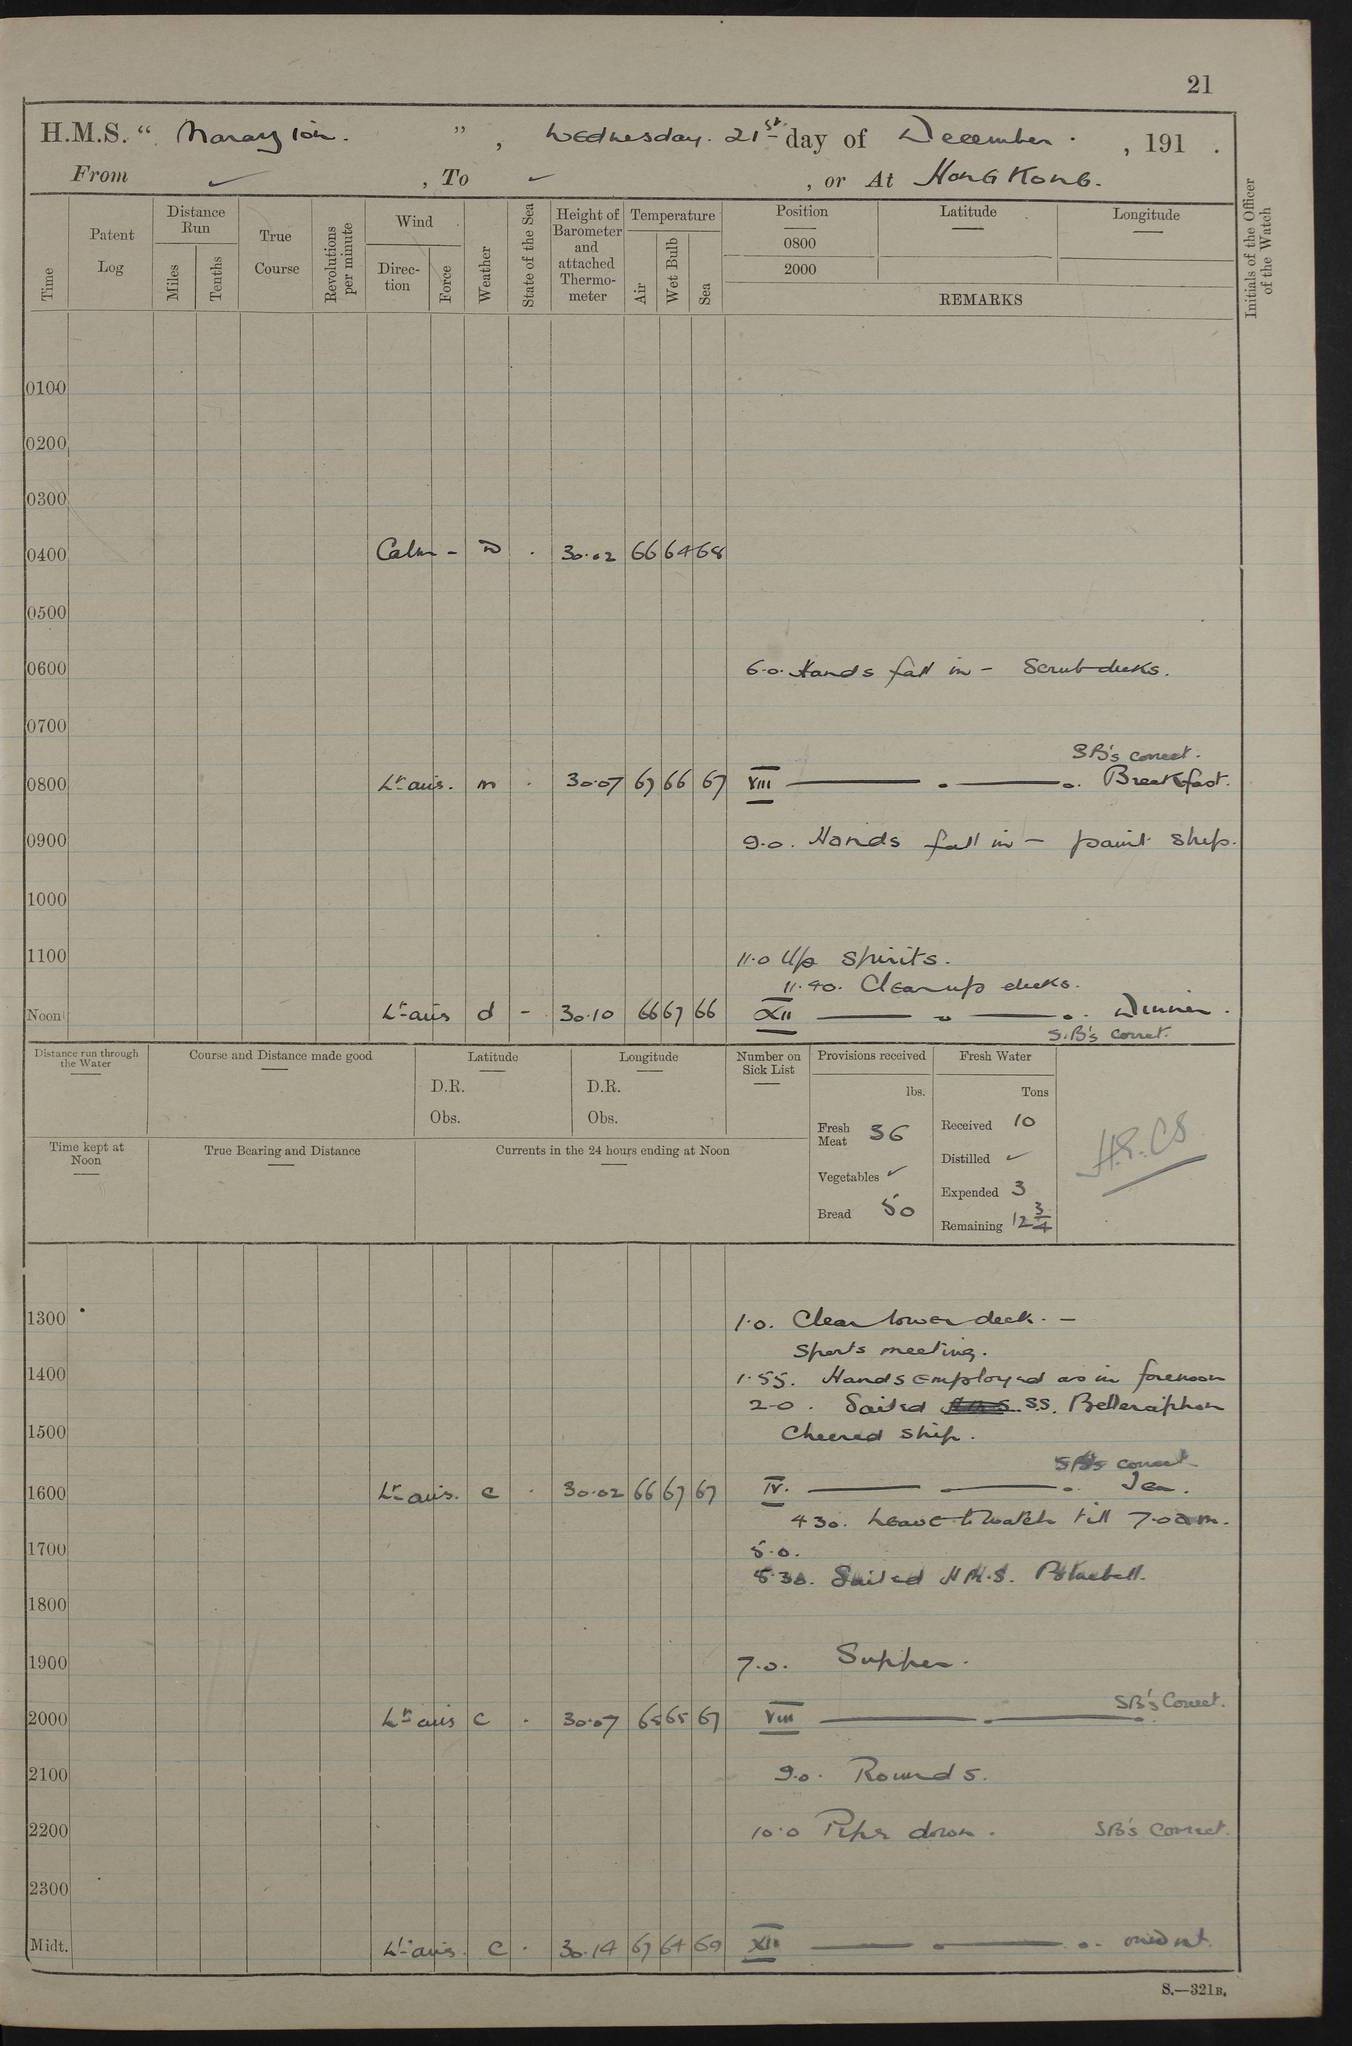 21
H.M.S. " Marazion. ", Wednesday. 21st day of December. , 191 .
From ✓ , To ✓ , or At Hong Kong.
Time Patent Log Distance Run Miles Tenths True Course Revolutions per minute Wind Direc-tion Force Weather State of the Sea Height of Barometer and attached Thermo-meter Temperature Air Wet Bulb Sea Position Latitude Longitude Initials of the Officer of the Watch
0800
2000
REMARKS
0100
0200
0300
0400 Calm - 30.02 66 64 68
0500
0600 6.0. Hands fall in - Scrub decks.
0700
SB's correct.
0800 Lt airs. m . 30.07 67 66 67 VIII Breakfast.
0900 9.0. Hands fall in - paint ship.
1000
1100 11.0 Up spirits.
11.40. Clear up decks.
Noon Lt airs d - 30.10 66 67 66 XII Dinner.
S.B's correct.
Distance run through the Water Course and Distance made good Latitude Longitude Number on Sick List Provisions received Fresh Water
lbs. Tons
D.R. D.R.
Obs. Obs.
Fresh Meat 36 Received 10
Distilled ✓
Time kept at Noon True Bearing and Distance Currents in the 24 hours ending at Noon
Vegetables ✓ Expended 3
Bread 50 Remaining 12 3/4
1300 1.0. Clear lower deck. -
Sports meeting.
1400 1.55. Hands employed as in forenoon
2.0. Sailed S.S. Bellerophon
1500 Cheered ship.
SB's correct
1600 Lt airs. c . 30.02 66 67 67 IV. Tea.
4 30. Leave to watch till 7.0 am.
1700 5.0.
5.30. Sailed H.M.S. Bluebell.
1800
1900 7.0. Supper.
SB's Correct.
2000 Lt airs c . 30.07 65 65 67 VIII
2100 9.0. Rounds.
2200 10.0 Pipe down. SB's Correct.
2300
Midt. Lt airs. c . 30.14 67 64 69 XII
S.—321B.